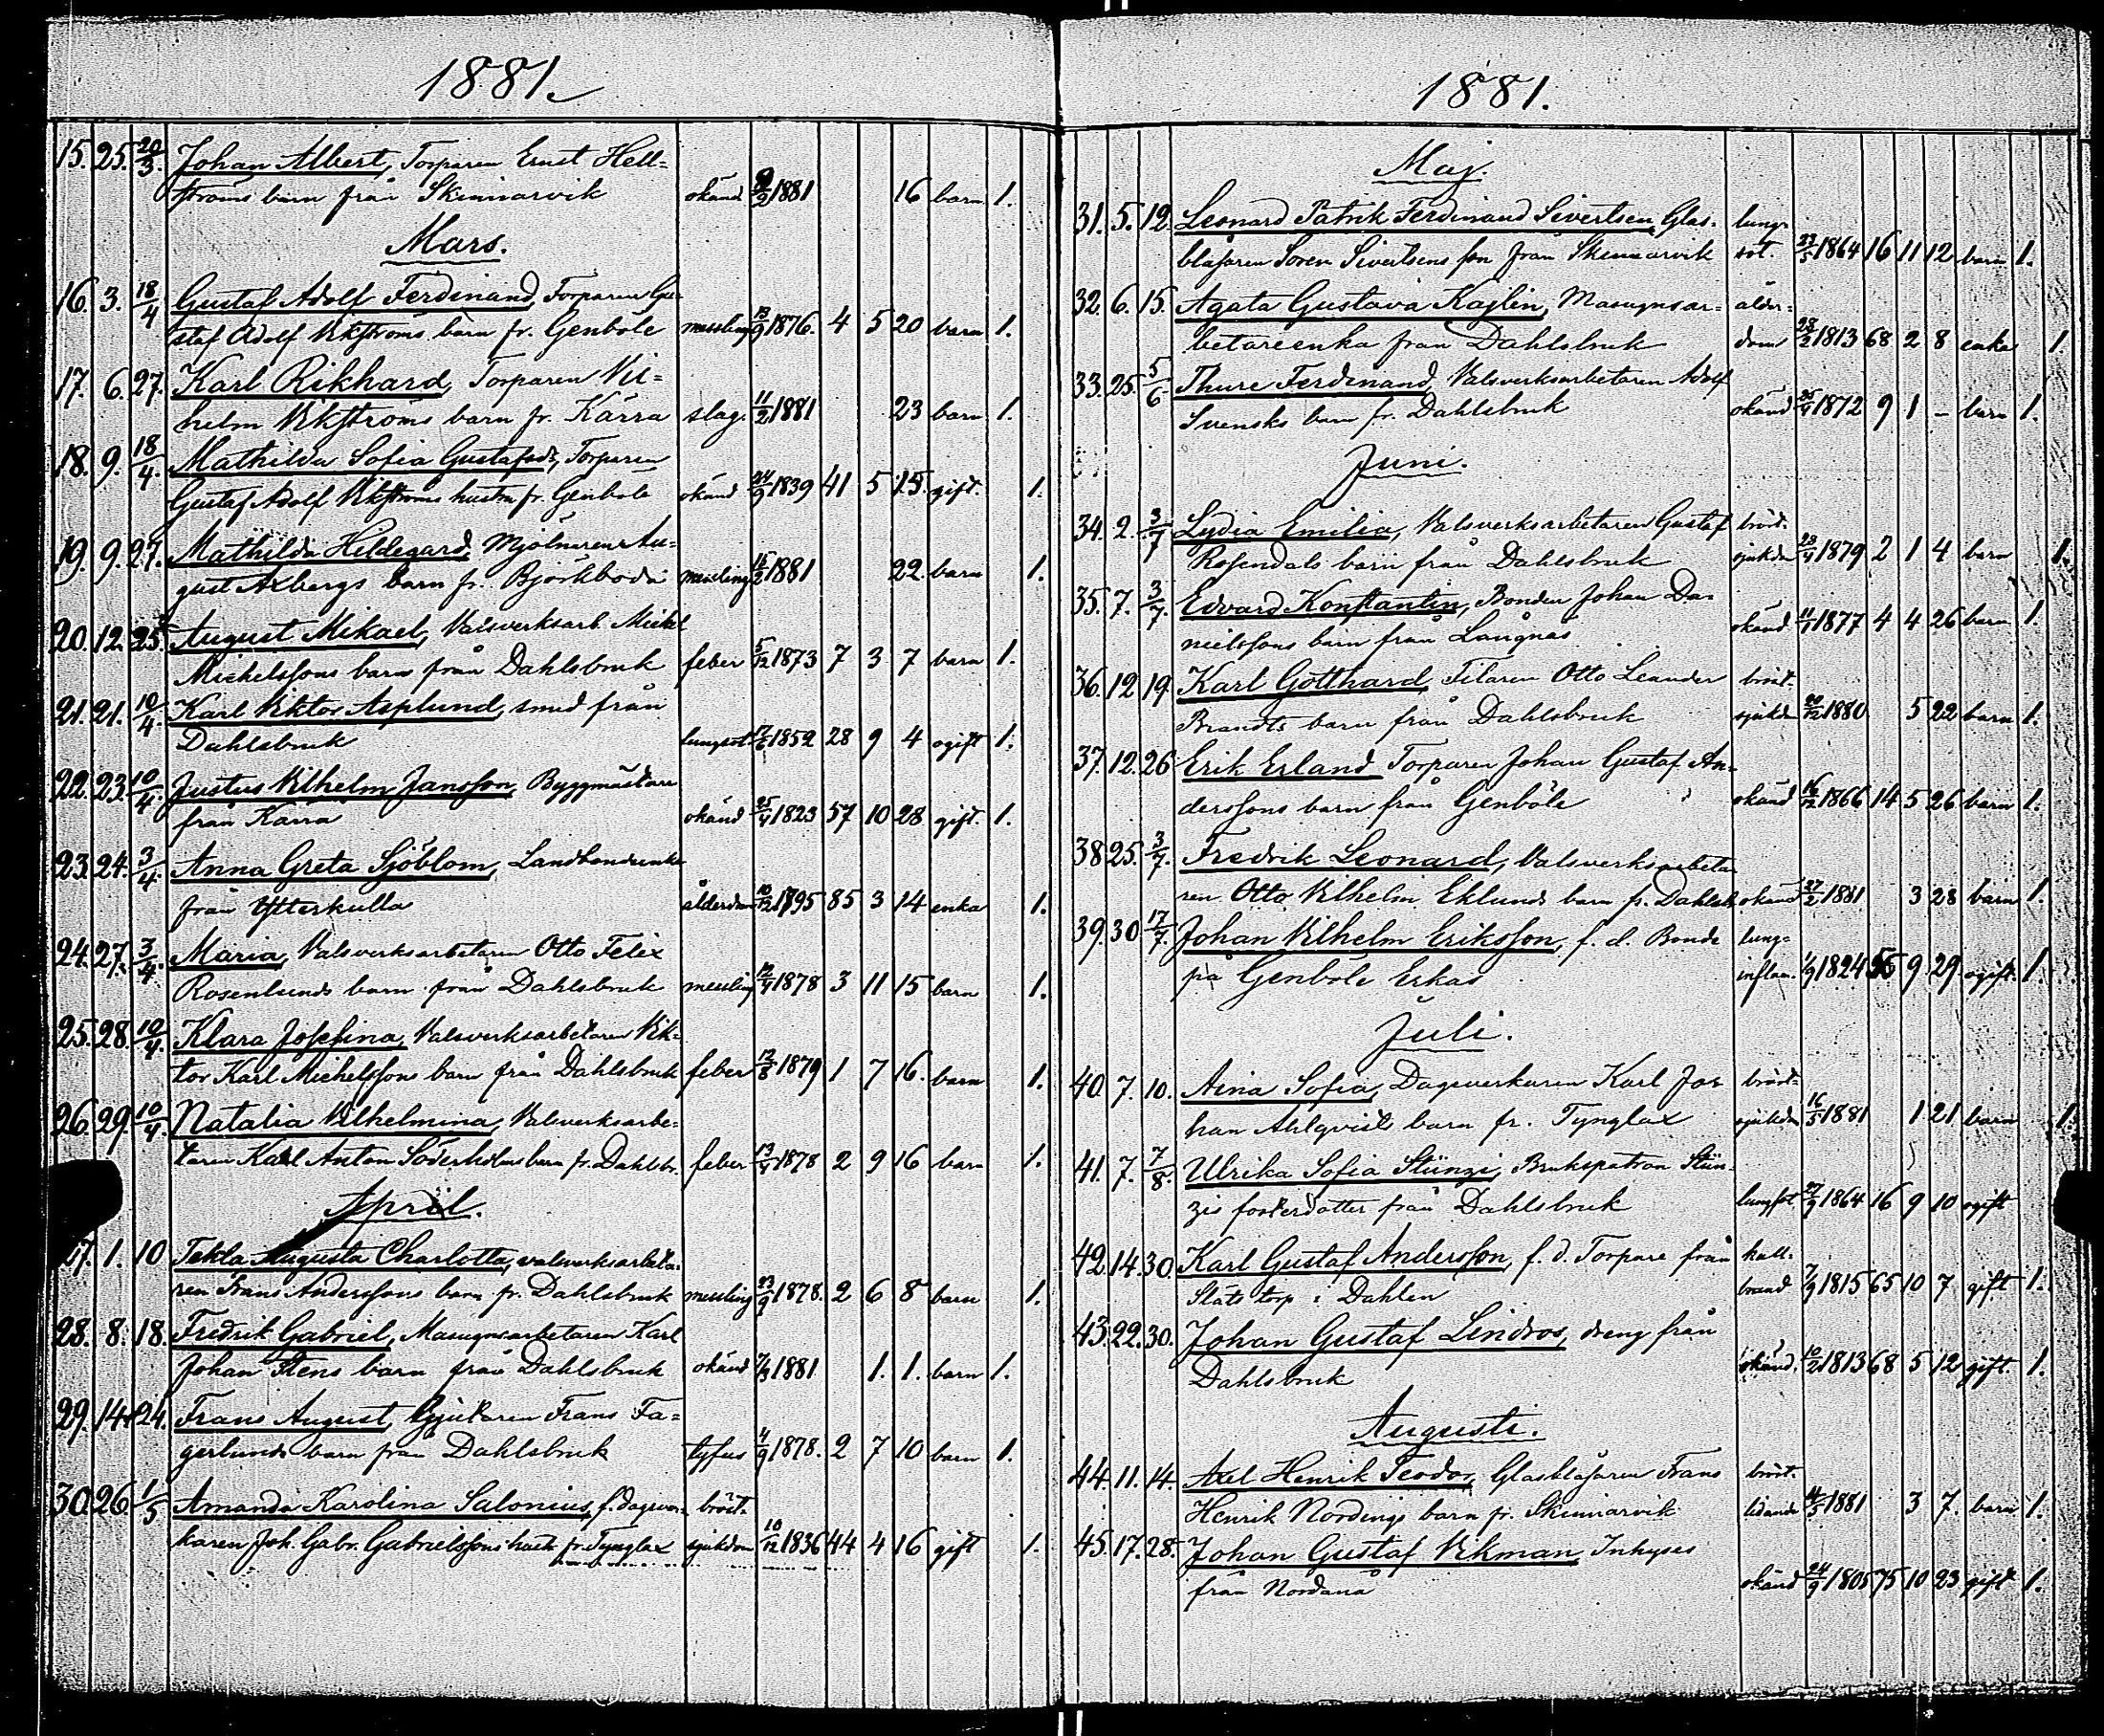 1881.
15. 25. 20/3. Johan Albert, Torparen Ernst Hell=
ströms barn från Skinnarvik okänd 9/2 1881 16 barn 1.
Mars.
16. 3. 18/4 Gustaf Adolf Ferdinand, Torparen Gu=
staf Adolf Vikströms barn fr. Genböle messling 13/9 1876. 4 5 20 barn 1.
17. 6. 27. Karl Rikhard, Torparen Vil=
helm Vikströms barn fr. Kärra slag. 11/2 1881 23 barn 1.
18. 9. 18/4. Mathilda Sofia Gustafsdr, Torparen
Gustaf Adolf Vikströms hustru fr. Genböle okänd 24/9 1839 41 5 15. gift. 1.
19. 9. 27. Mathilda Hildegard, Mjölnaren Au=
gust Axbergs barn fr. Björkboda messling 15/2 1881 22 barn 1.
20. 12. 25. August Mikael, Valsverksarb. Mickel
Michelssons barn från Dahlsbruk feber 5/12 1873 7 3 7 barn 1.
21. 21. 10/4. Karl Viktor Asplund, smed från
Dahlsbruk lungsot 17/6 1852 28 9 4 ogift 1.
22. 23. 10/4. Justus Vilhelm Jansson, Byggmästare
från Kärra okänd 25/4 1823 57 10 28 gift. 1.
23. 24. 3/4. Anna Greta Sjöblom, Landbondeenka
från Ytterkulla ålderdom 10/12 1795 85 3 14 enka 1.
24. 27. 3/4. Maria, Valsverksarbetaren Otto Felix
Rosenlunds barn från Dahlsbruk messling 12/4 1878 3 11 15 barn 1.
25. 28. 10/4. Klara Josefina, Valsverksarbetaren Vik=
tor Karl Michelssons barn från Dahlsbruk feber 12/8 1879 1 7 16. barn 1.
26. 29. 10/4. Natalia Vilhelmina, Valsverksarbe=
taren Karl Anton Söderholms barn fr. Dahlsbr. feber 13/4 1878 2 9 16 barn 1.
April.
27. 1. 10 Tekla Augusta Charlotta, valsverksarbeta=
ren Frans Anderssons barn fr. Dahlsbruk messling 23/9 1878. 2 6 8 barn 1.
28. 8. 18. Fredrik Gabriel, Masugnsarbetaren Karl
Johan Stens barn från Dahlsbruk okänd 7/3 1881 1. 1. barn 1.
29. 14. 24. Frans August, Gjutaren Frans Fa=
gerlunds barn från Dahlsbruk tyfus 4/9 1878. 2 7 10 barn 1.
30. 26. 1/5 Amanda Karolina Salonius, f. dagsver= bröst=
karen Joh. Gabr. Gabrielssons hustr. fr. Tynglax sjukdom 10/12 1836 44 4 16 gift 1.
1881.
Maj.
31. 5. 12. Leonard Patrik Ferdinand Sivertsen, Glas= lung=
blåsaren Soren Sivertsens son från Skinnarvik sot. 23/5 1864 16 11 12 barn 1.
32. 6. 15. Agata Gustava Kajlin, Masugnsar= ålder=
betareenka från Dahlsbruk dom 28/2 1813 68 2 8 enka 1.
33. 25. 5/6. Thure Ferdinand, Valsverksarbetaren Adolf
Svensks barn fr. Dahlsbruk okänd 25/4 1872 9 1 – barn 1.
Juni.
34. 2. 3/7 Lydia Emilia, Valsverksarbetaren Gustaf bröst.
Rosendals barn från Dahlsbruk sjukdm 28/4 1879 2 1 4 barn 1.
35. 7. 3/7. Edvard Konstantin, Bonden Johan Da=
nielssons barn från Långnäs okänd 11/1 1877 4 4 26 barn 1.
36. 12. 19. Karl Gotthard, Filaren Otto Leander bröst.
Brandts barn från Dahlsbruk sjukdm 20/12 1880 5 22 barn 1.
37. 12. 26 Erik Erland Torparen Johan Gustaf An=
derssons barn från Genböle okänd 16/12 1866 14 5 26 barn 1.
38 25. 3/7. Fredrik Leonard, Valsverksarbeta=
ren Otto Vilhelm Eklunds barn fr. Dahlsb. okänd 27/2 1881 3 28 barn 1.
39. 30 17/7. Johan Vilhelm Eriksson, f. d. Bonde lung=
på Genböle Erkas inflam. 1/9 1824 56 9 29 ogift 1.
Juli.
40. 7. 10. Aina Sofia, Dagsverkaren Karl Jo= bröst=
han Ahlqvists barn fr. Tynglax sjukdm 16/5 1881 1 21 barn 1.
41. 7. 7/8. Ulrika Sofia Stünzi, Brukspatron Stün=
zis fosterdotter från Dahlsbruk lungsot 27/9 1864 16 9 10 ogift
42. 14. 30. Karl Gustaf Andersson, f. d. Torpare från kall=
Släts torp i Dahlen brand 7/9 1815 65 10 7 gift 1.
43. 22. 30. Johan Gustaf Lindros, dreng från
Dahlsbruk okänd. 10/2 1813 68 5 12 gift. 1.
Augusti.
44. 11. 14. Axel Henrik Teodor, Glasblåsaren Frans bröst.
Henrik Nordings barn fr. Skinnarvik lidande 4/5 1881 3 7. barn 1.
45. 17. 28. Johan Gustaf Vikman, Inhyses
från Nordanå okänd 24/9 1805 75 10 23 gift 1.